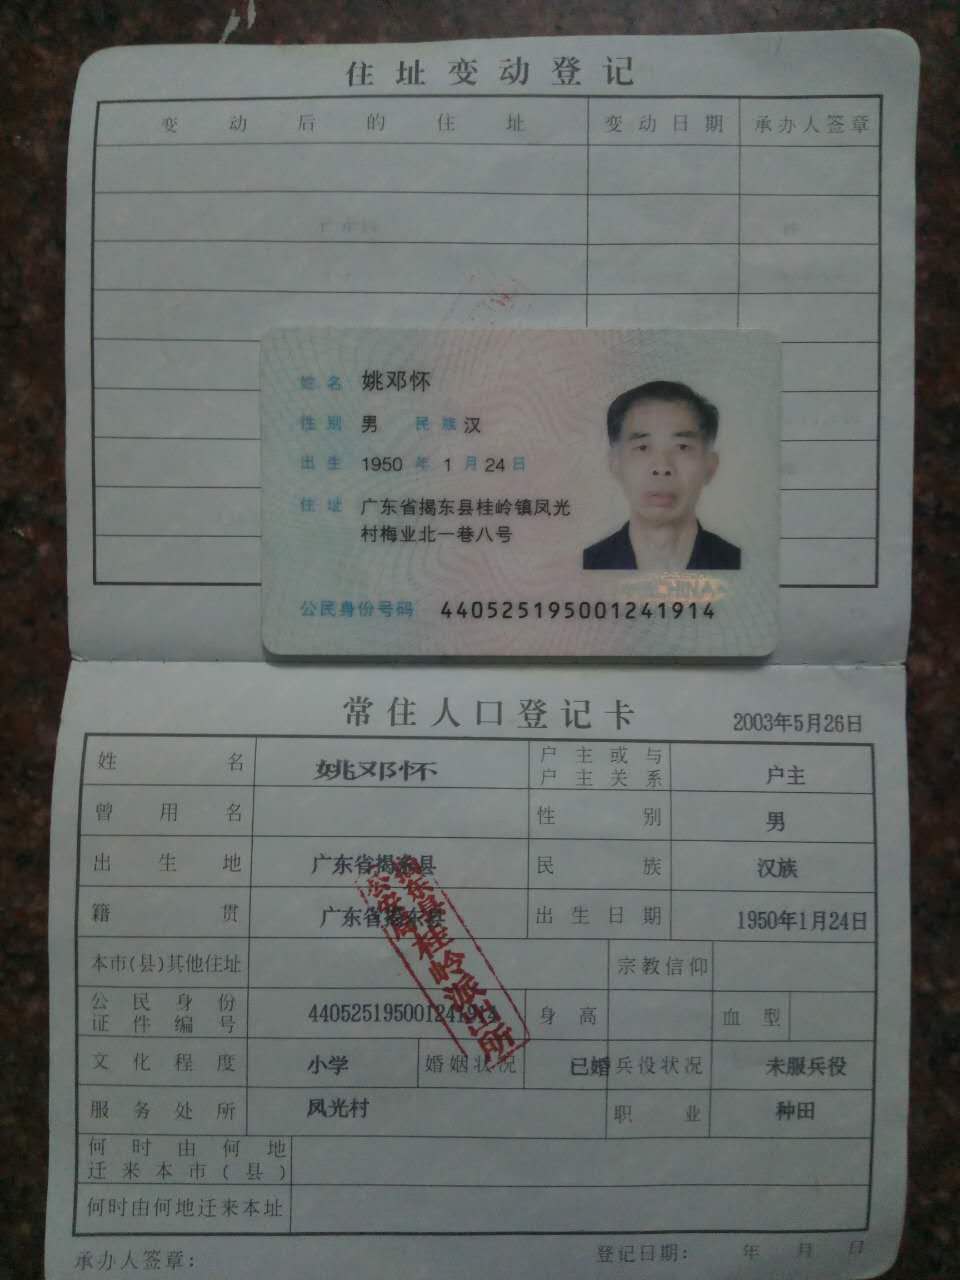 住址变动登记
变动后的住址 变动日期 承办人签章
姓名 姚邓怀
性别 男 民族 汉
出生 1950年1月24日
住址 广东省揭东县桂岭镇凤光
村梅业北一巷八号
公民身份号码 440525195001241914
常住人口登记卡 2003年5月26日
姓名 姚邓怀 户主或与
户主关系 户主
曾用名 性别 男
出生地 广东省揭东县 民族 汉族
籍贯 广东省揭东县 出生日期 1950年1月24日
本市(县)其他住址 宗教信仰
公民身份
证件编号 440525195001241914 身高 血型
文化程度 小学 婚姻状况 已婚 兵役状况 未服兵役
服务处所 凤光村 职业 种田
何时由何地
迁来本市(县)
何时由何地迁来本址
承办人签章： 登记日期： 年 月 日
揭东县
公安局
桂岭派出所